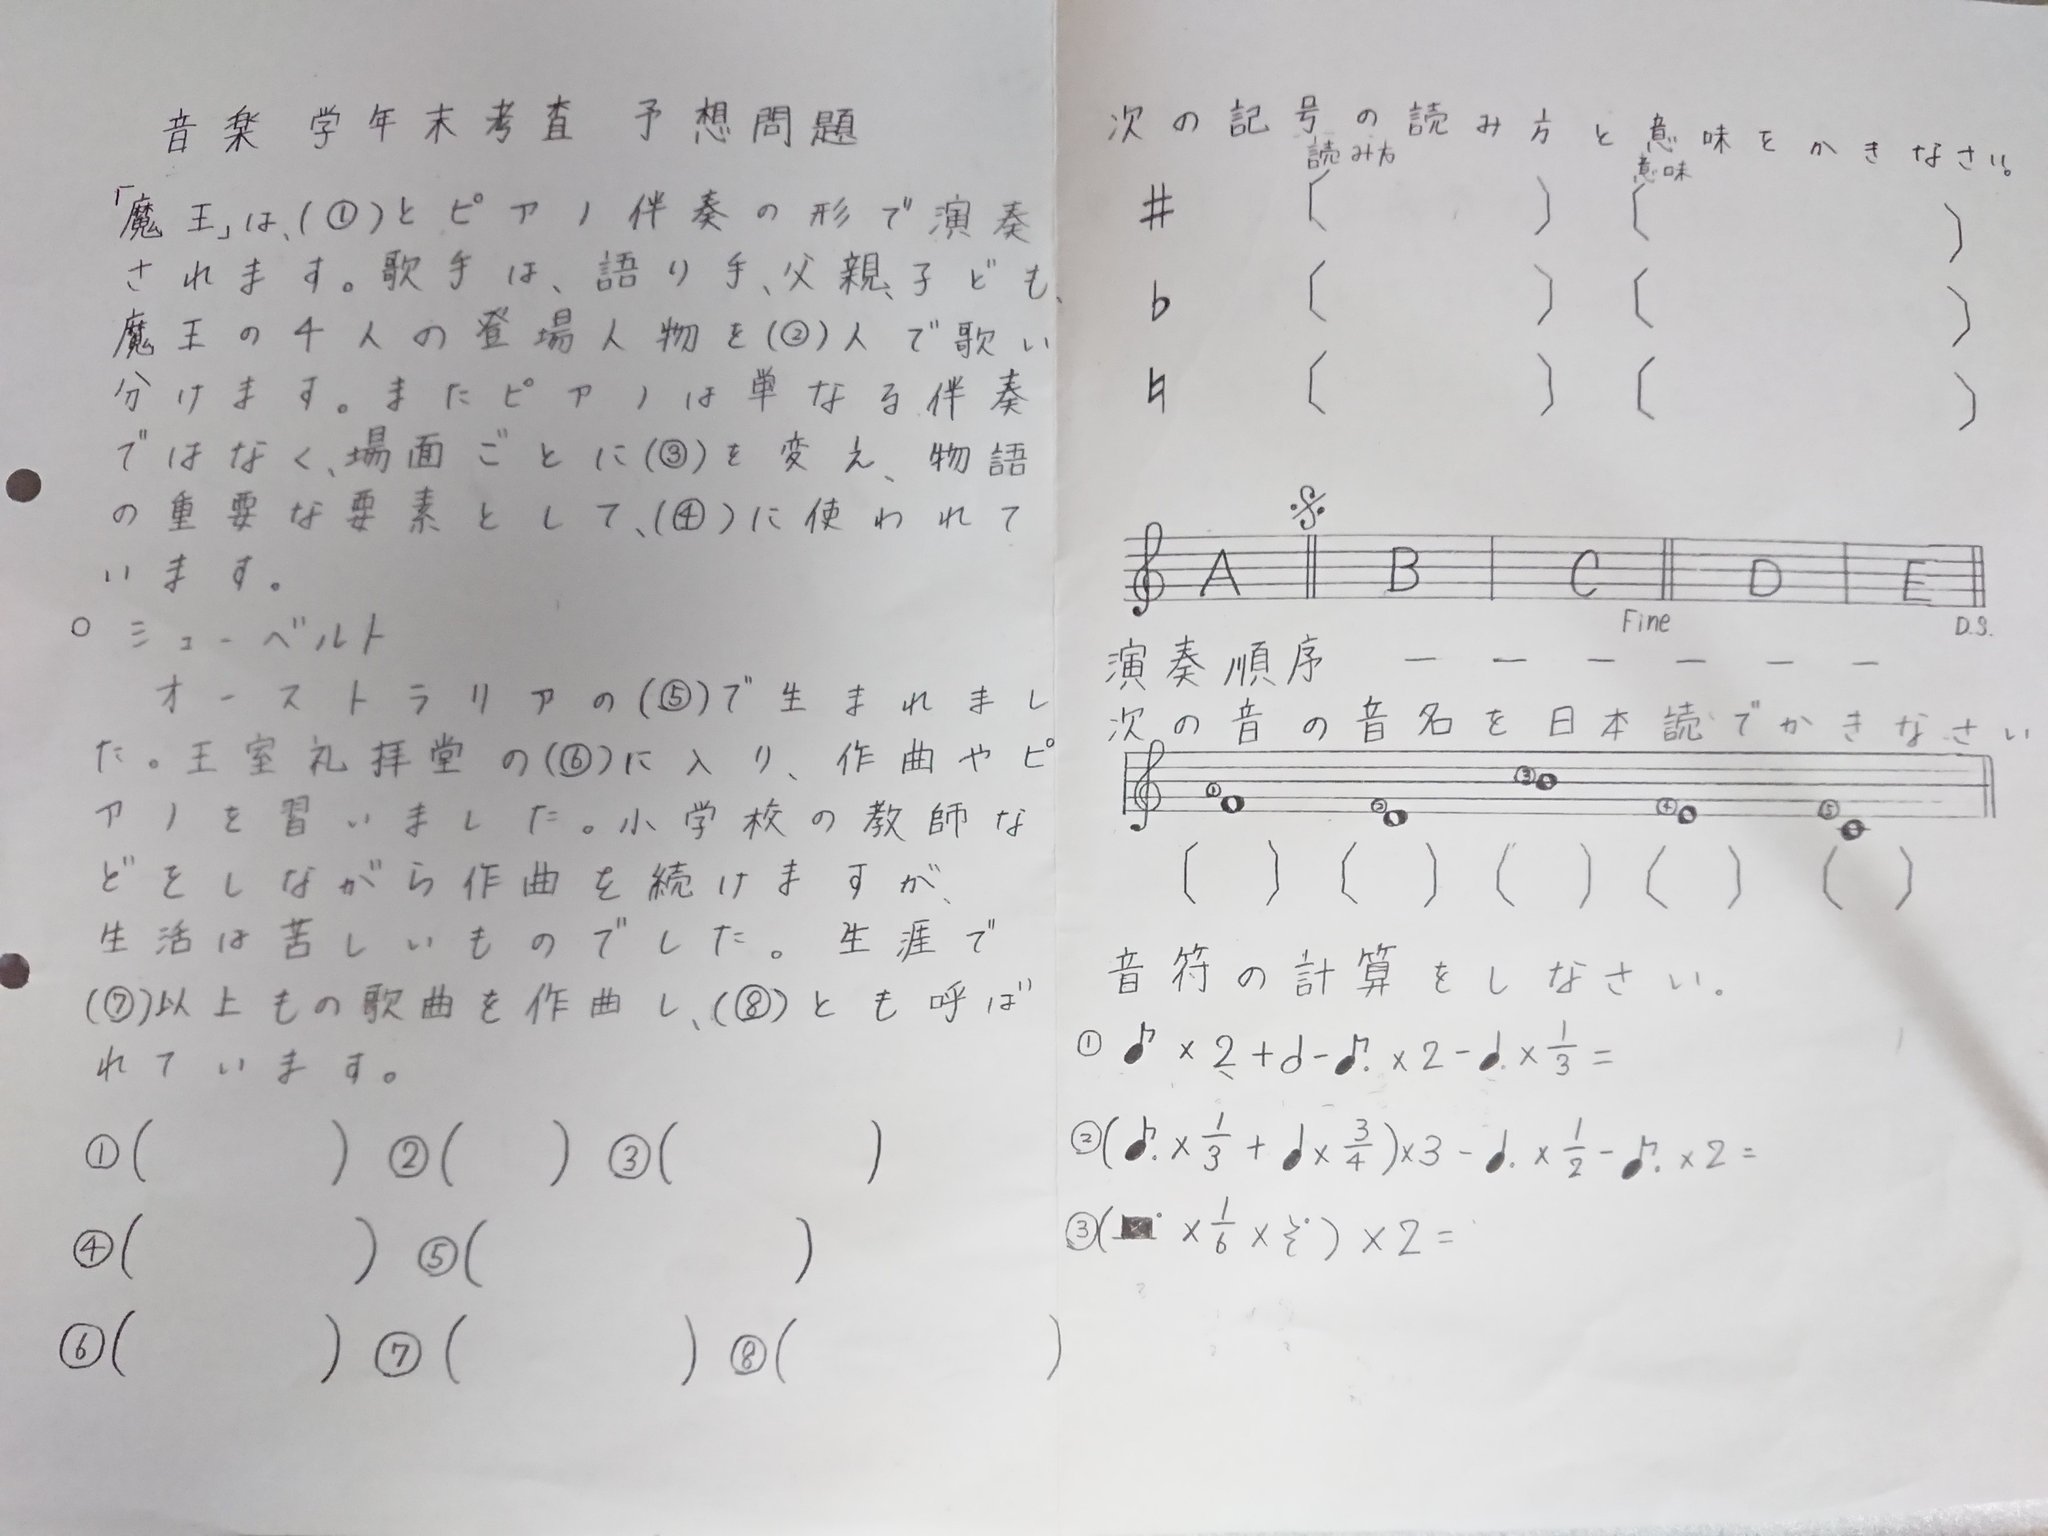 音楽 学年末考査 予想問題
「魔王」は、(①)とピアノ伴奏の形で演奏
されます。歌手は、語り手、父親、子ども、
魔王の4人の登場人物を(②)人で歌い
分けます。またピアノは単なる伴奏
ではなく、場面ごとに(③)を変え、物語
の重要な要素として、(④)に使われて
います。
○ シューベルト
オーストラリアの(⑤)で生まれまし
た。王室礼拝堂の(⑥)に入り、作曲やピ
アノを習いました。小学校の教師な
どをしながら作曲を続けますが、
生活は苦しいものでした。生涯で
(⑦)以上もの歌曲を作曲し、(⑧)とも呼ば
れています。
①( ) ②( ) ③( )
④( ) ⑤( )
⑥( ) ⑦( ) ⑧( )
次の記号の読み方と意味をかきなさい。
読み方 意味
♯ ( ) ( )
♭ ( ) ( )
♮ ( ) ( )
A B C D E
Fine D.S.
演奏順序 ー ー ー ー ー ー
次の音の音名を日本読でかきなさい
① ② ③ ④ ⑤
( ) ( ) ( ) ( ) ( )
音符の計算をしなさい。
① ♪×2+𝅗𝅥-♪.×2-♩.×1/3=
②(♪.×1/3+♩×3/4)×3-♩.×1/2-♪.×2=
③(𝄼.×1/6×𝄽.)×2=